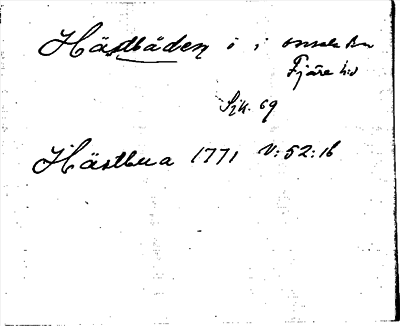 Hästbåden ö i Onsala sn
Fjäre hd
Sjk. 69
Hästbua 1771 V:52:16